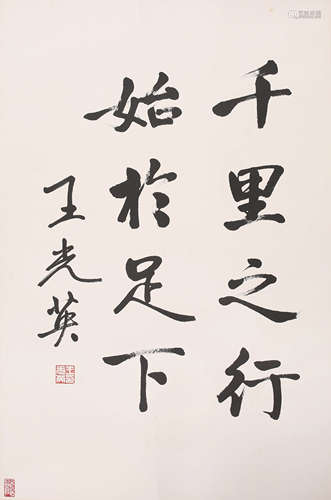 千里之行
始於足下
王光英